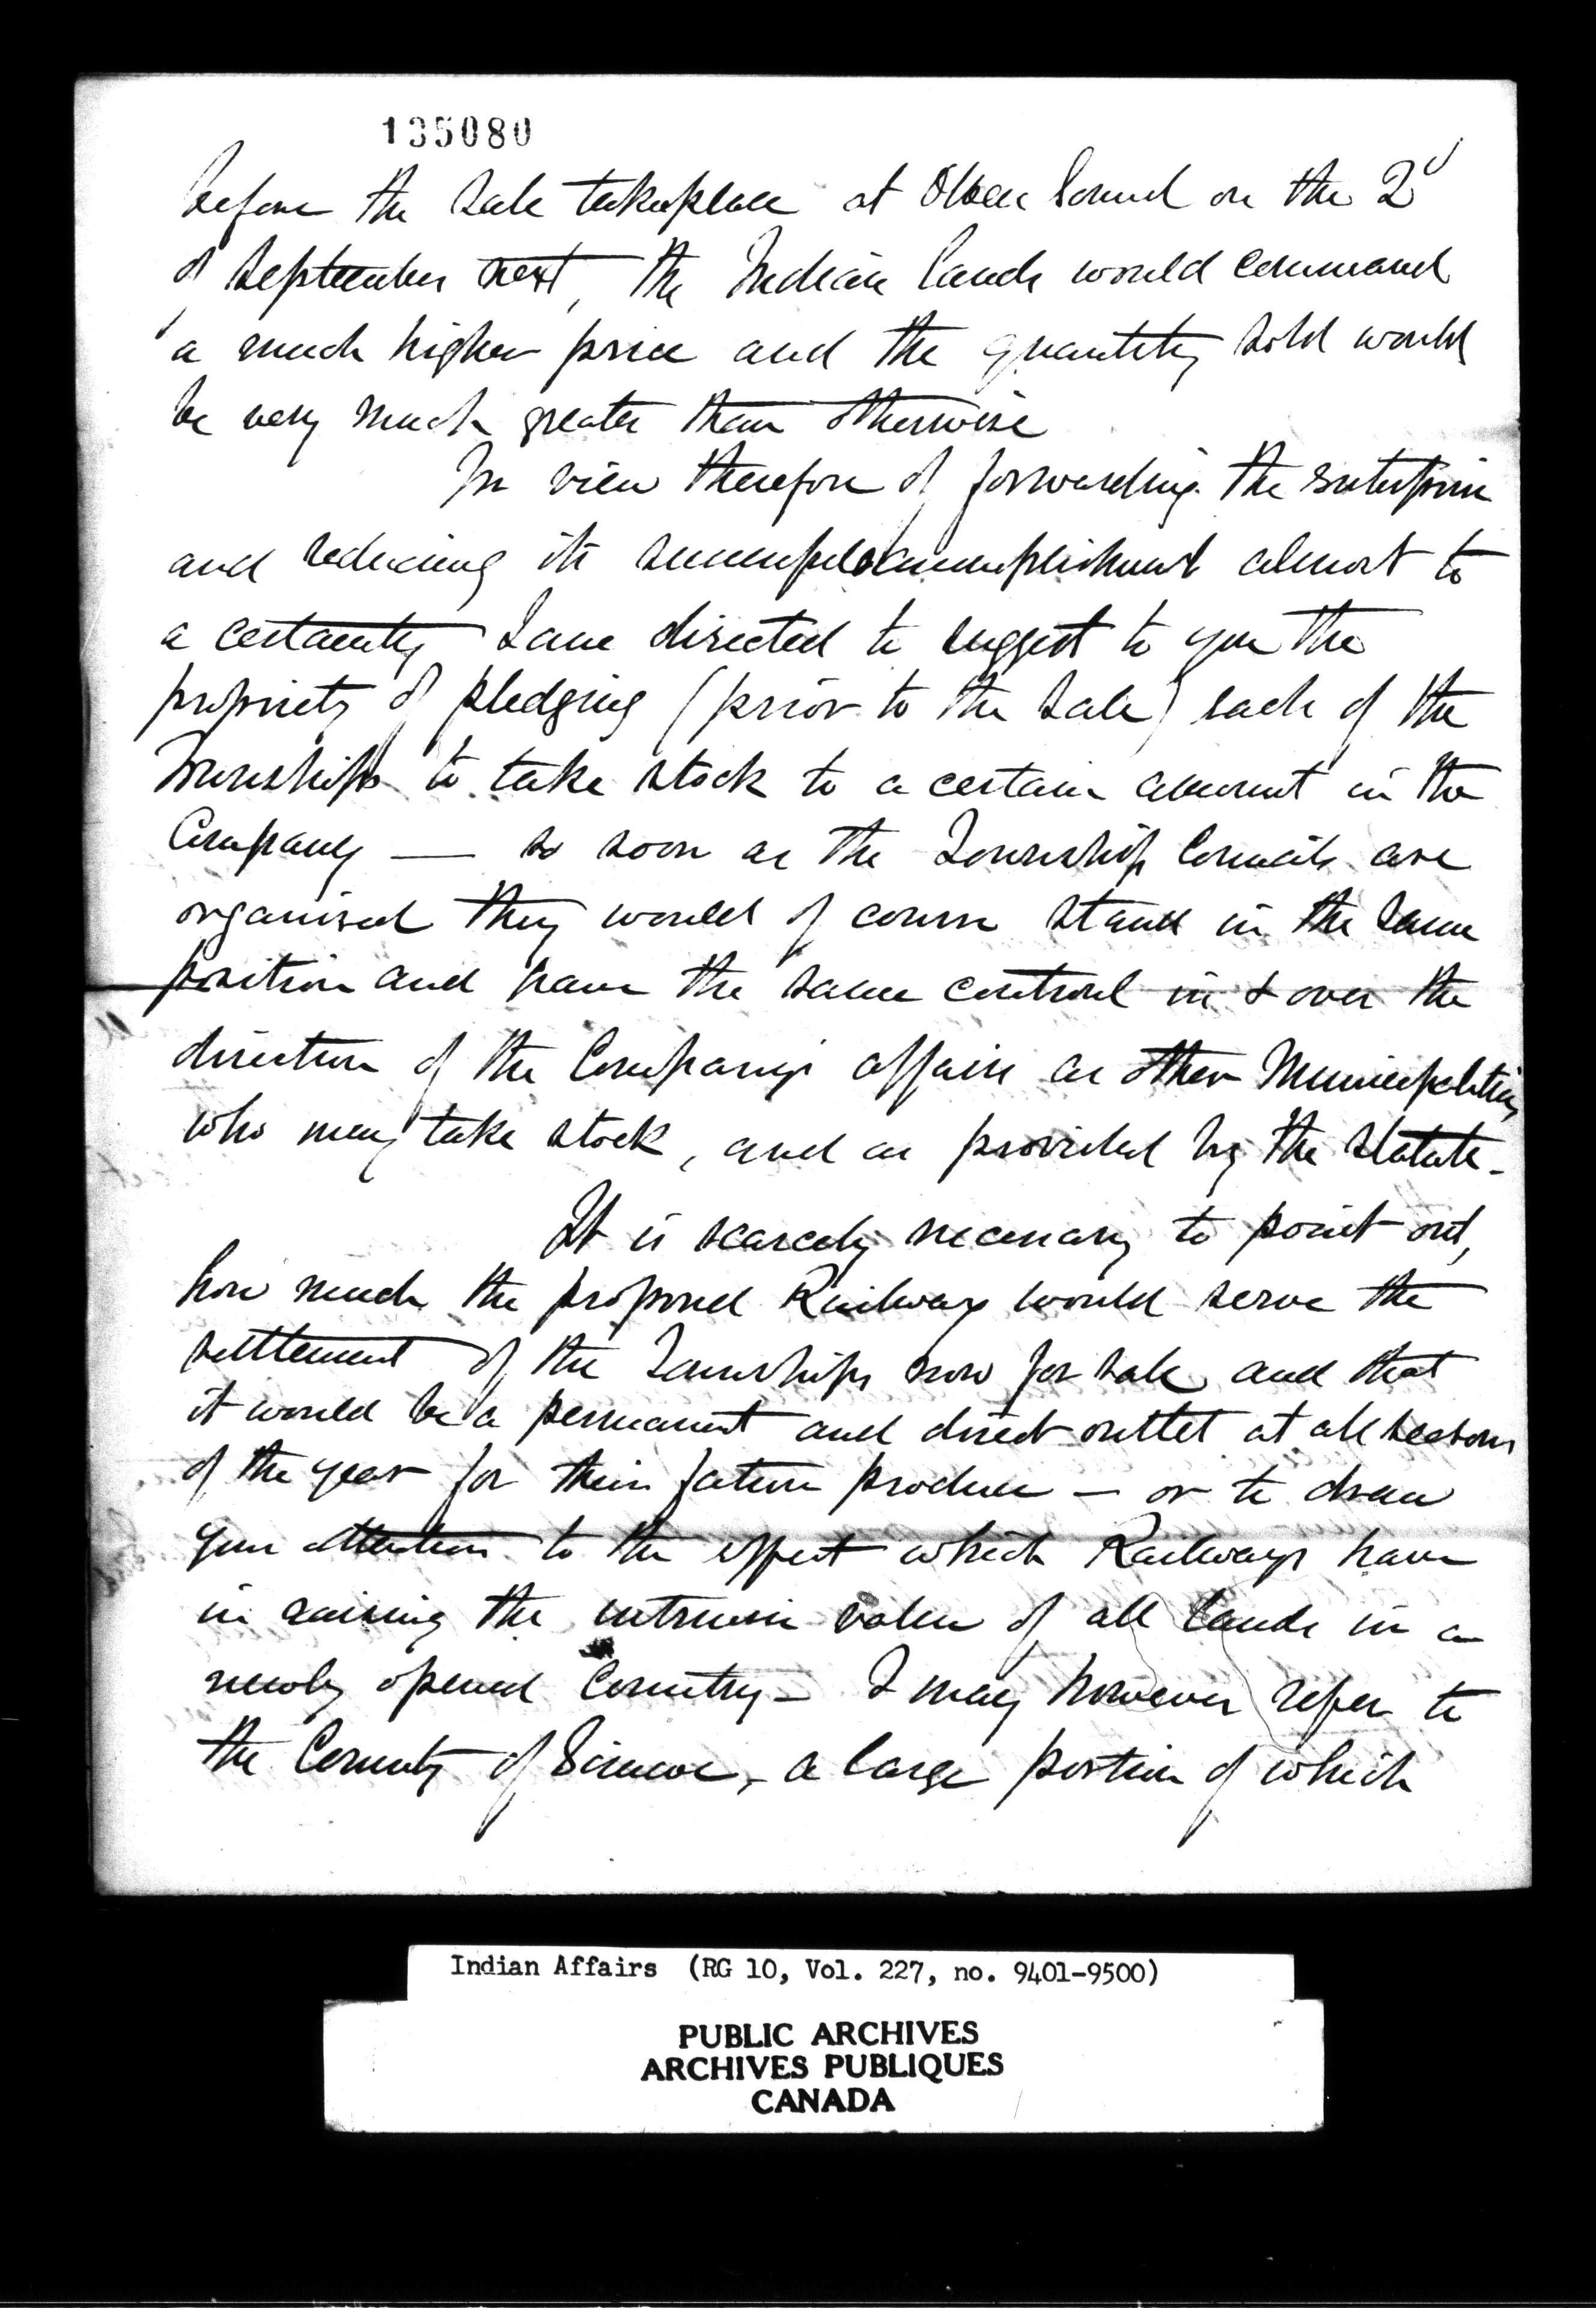 135080
before the Sale takes place at Owen Sound on the 2d
of September next, the Indian Lands would command
a much higher price and the quantity sold would
be very much greater than otherwise
In view therefore of forwarding the enterprise
and reducing its successful accomplishment almost to
a certainty I am directed to suggest to you the
propriety of pledging (prior to the Sale) each of the
Townships to take stock to a certain amount in the
Company — so soon as the Township Councils are
organised they would of course stand in the same
position and have the same controul in & over the
direction of the Companys affairs as other Municipalities
who may take stock, and as provided by the Statute -
It is scarcely necessary to point out,
how much the proposed Railway would serve the
settlement of the Townships now for sale and that
it would be a permanent and direct outlet at all seasons
of the year for their future produce — or to draw
your attention to the effect which Railways have
in raising the intrinsic value of all Lands in a
newly opened Country - I may however refer to
the County of Simcoe, a large portion of which
Indian Affairs (RG 10, Vol. 227, no. 9401-9500)
PUBLIC ARCHIVES
ARCHIVES PUBLIQUES
CANADA